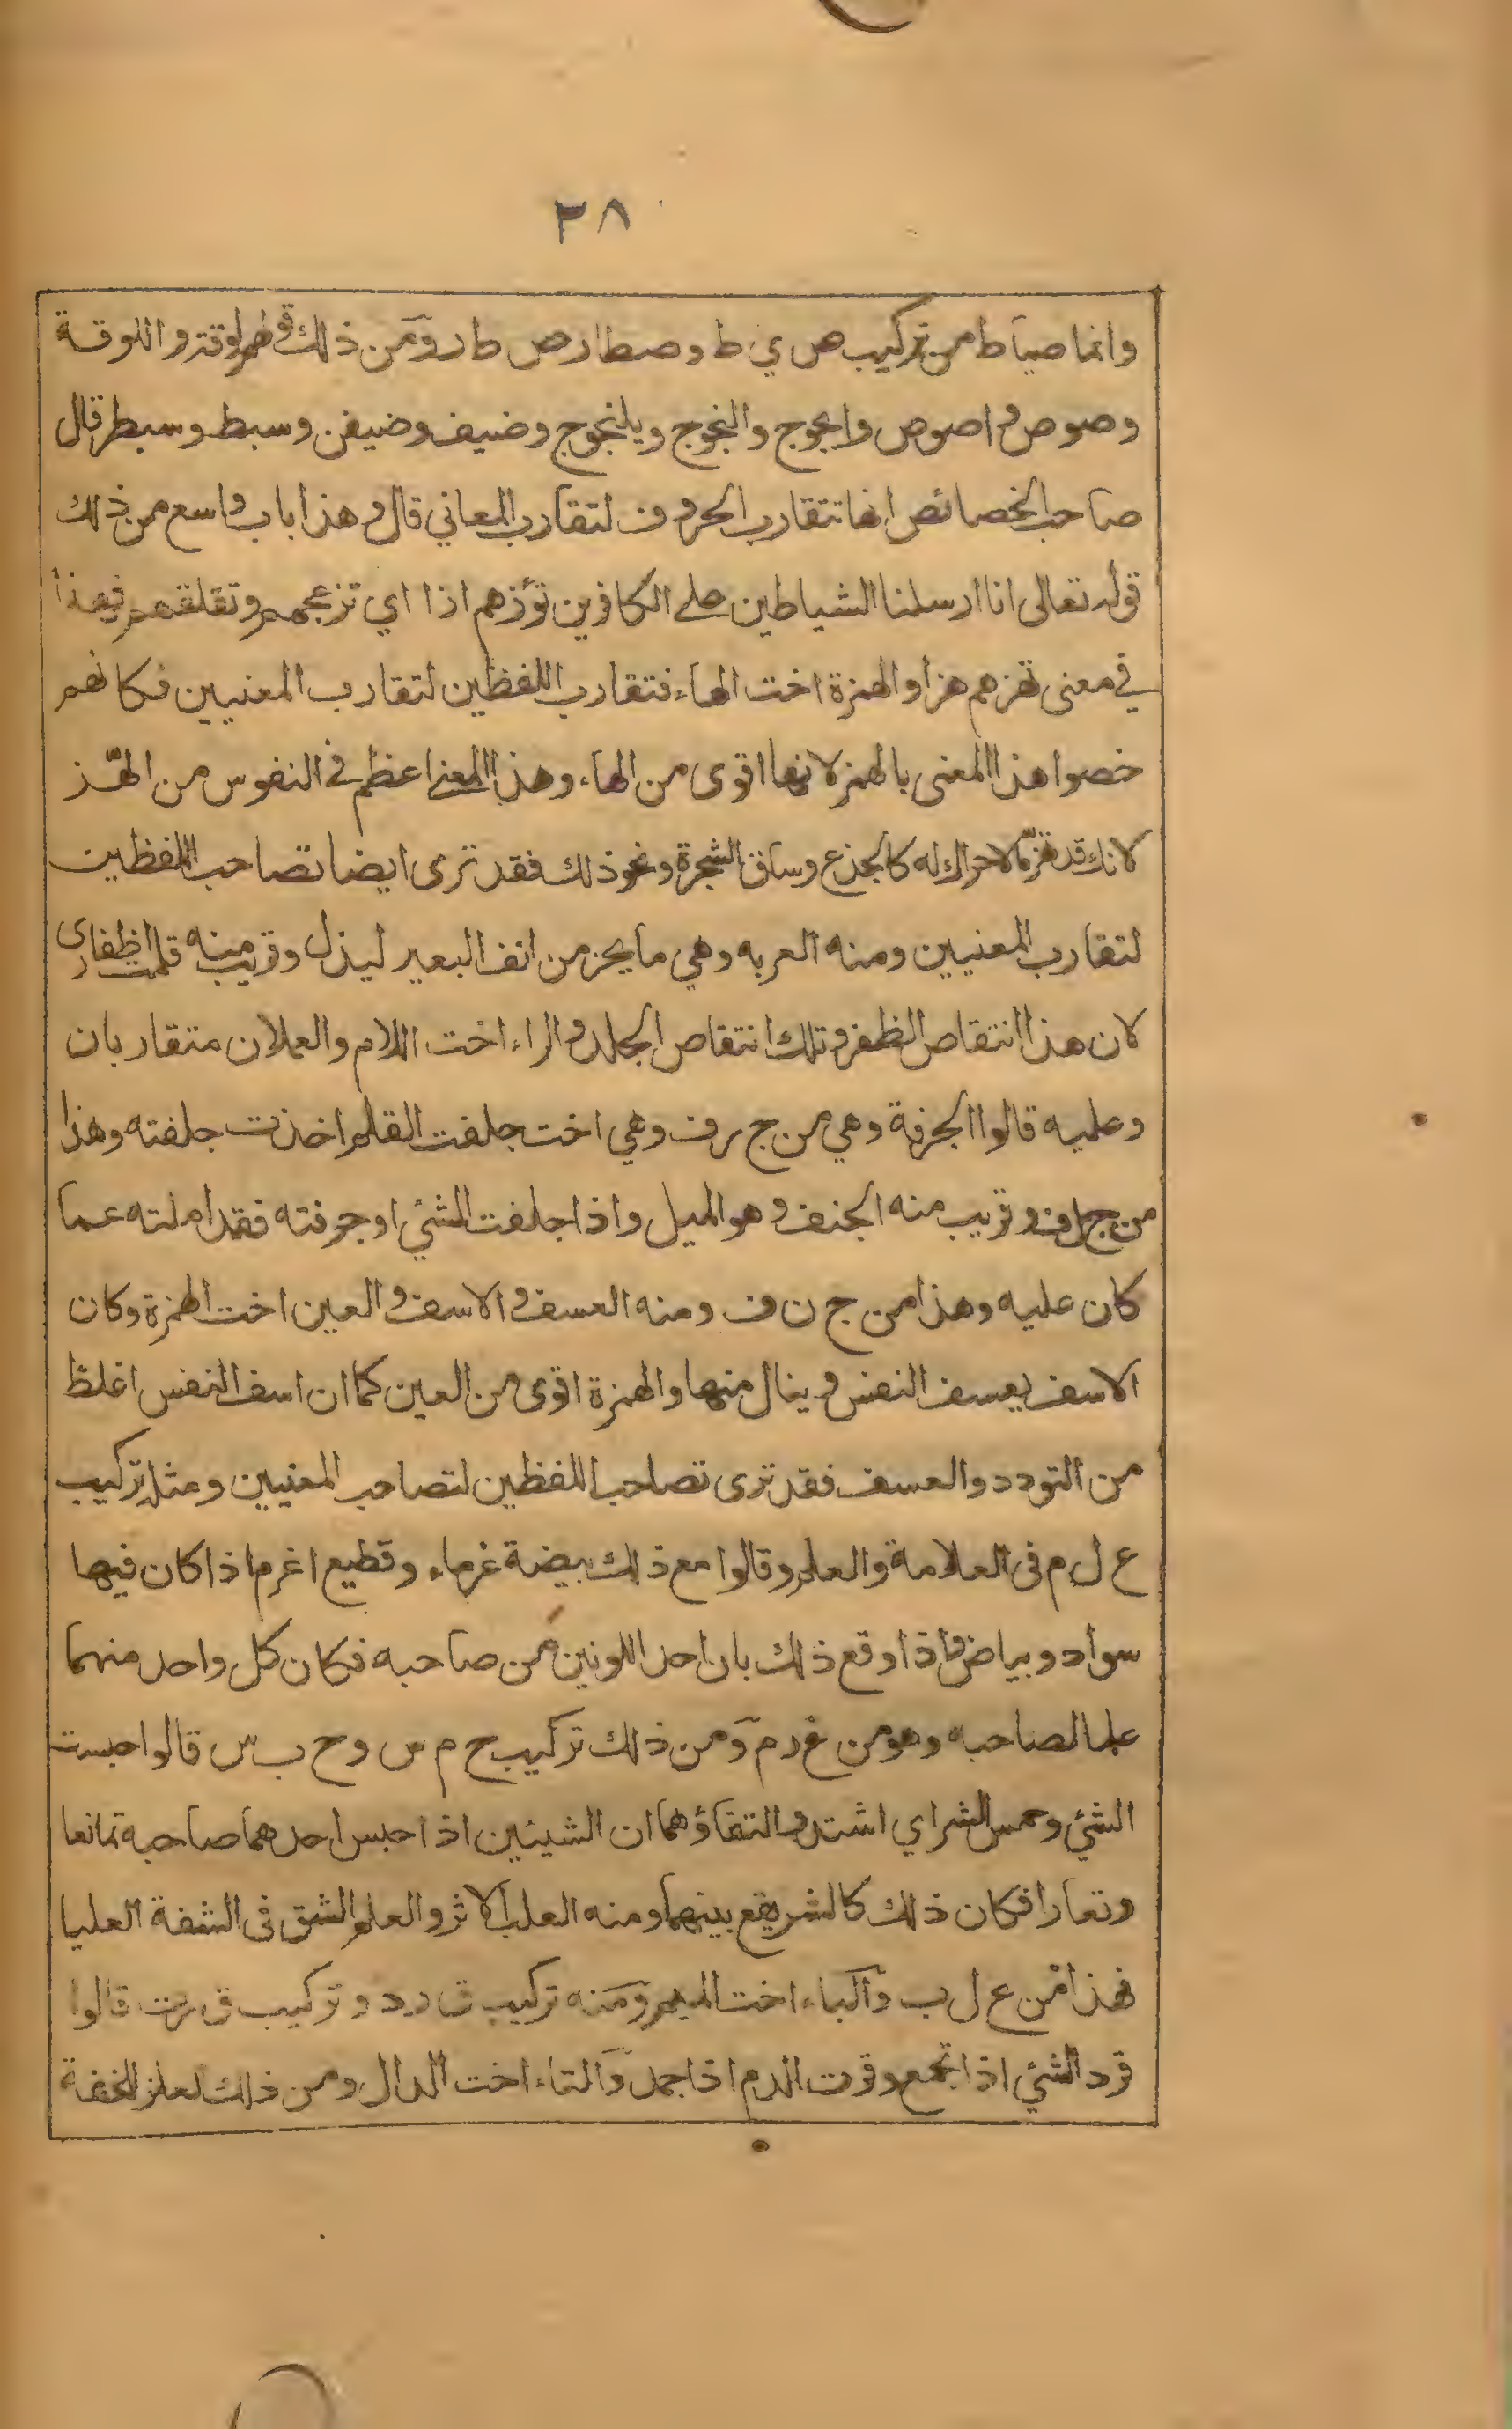 ٣٨
وانما صياط من تركيب ص ي ط وصطار ص ط ر ومن ذلك قولهم لوقة والوقة
وصوص واصوص وايجوج والنجوج ويلنجوج وضيف وضيفن وسبط وسبطر قال
صاحب الخصائص انما تتقارب الحروف لتقارب المعاني قال وهذا باب واسع من ذلك
قوله تعالى انا ارسلنا الشياطين على الكافرين تؤزهم ازا اي تزعجهم وتقلقهم فهذا
في معنى تهزهم هزا والهمزة اخت الهاء فتقارب اللفظين لتقارب المعنيين فكانهم
خصوا هذا المعنى بالهمز لانها اقوى من الهاء وهذا المعنى اعظم في النفوس من الهز
لانك قد تهز ما لا حراك له كالجذع وساق الشجرة ونحو ذلك فقد ترى ايضا تصاحب اللفظين
لتقارب المعنيين ومنه العربه وهي ما يحز من انف البعير ليذل وقريب منه قلمت اظفاري
لان هذا انتقاص الظفر وتلك انتقاص الجلد والراء اخت اللام والعملان متقاربان
وعليه قالوا الجرفة وهي من ج ر ف وهي اخت جلفت القلم اخذت جلفته وهذا
من ج ل ف وقريب منه الجنف وهو الميل واذا جلفت الشئ او جرفته فقد املته عما
كان عليه وهذا من ج ن ف ومنه العسف والاسف والعين اخت الهمزة وكان
الاسف يعسف النفس وينال منها والهمزة اقوى من العين كما ان اسف النفس اغلظ
من التودد والعسف فقد ترى تصاحب اللفظين لتصاحب المعنيين ومثله تركيب
ع ل م فى العلامة والعلم وقالوا مع ذلك بيضة غرماء وقطيع اغرم اذا كان فيها
سواد وبياض واذا وقع ذلك بان احد اللونين من صاحبه فكان كل واحد منهما
علما لصاحبه وهو من غ ر م ومن ذلك تركيب ح م س وح ب س قالوا حبست
الشئ وحمس الشر اي اشتد والتقاؤهما ان الشيئين اذا حبس احدهما صاحبه تمانعا
وتعارا فكان ذلك كالشر يقع بينهما ومنه العلب الاثر والعلم الشق فى الشفة العليا
فهذا من ع ل ب والباء اخت الميم ومنه تركيب ق ر د وتركيب ق ر ت قالوا
قرد الشئ اذا تجمع وقرت الدم اذا جمد والتاء اخت الدال ومن ذلك لعلز للخفة